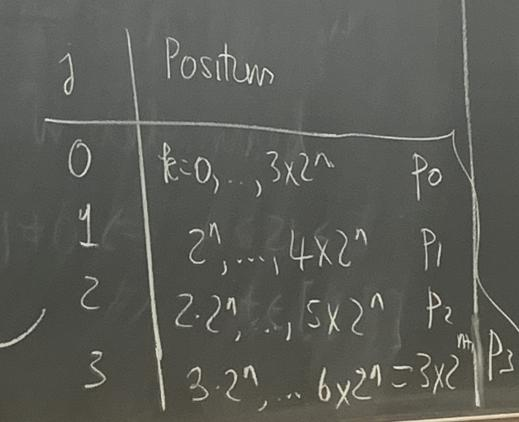 j Position
0 k=0,...,3×2ⁿ P₀
1 2ⁿ,...,4×2ⁿ P₁
2 2·2ⁿ,...,5×2ⁿ P₂
3 3·2ⁿ,... 6×2ⁿ = 3×2ⁿ⁺¹ P₃